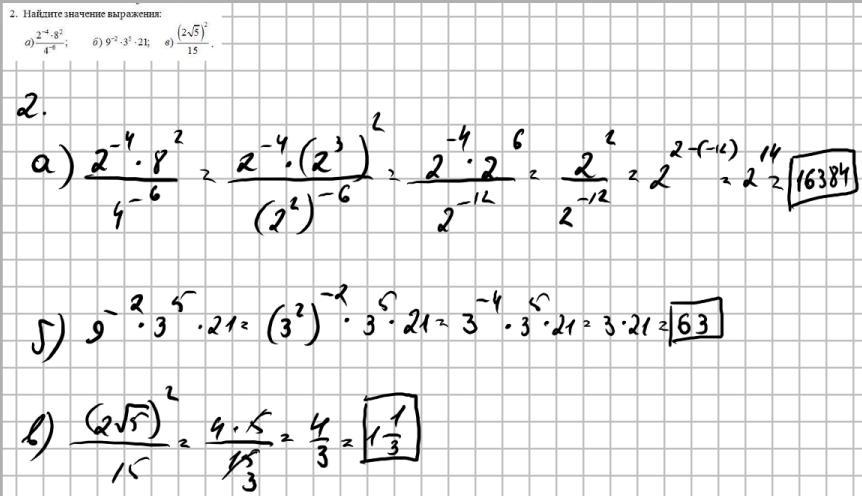 2. Найдите значение выражения:
а) (2⁻⁴·8²)/4⁻⁶; б) 9⁻²·3⁵·21; в) (2√5)²/15.
2.
а) (2⁻⁴·8²)/4⁻⁶ = (2⁻⁴·(2³)²)/(2²)⁻⁶ = (2⁻⁴·2⁶)/2⁻¹² = 2²/2⁻¹² = 2²⁻⁽⁻¹²⁾ = 2¹⁴ = 16384
б) 9⁻²·3⁵·21 = (3²)⁻²·3⁵·21 = 3⁻⁴·3⁵·21 = 3·21 = 63
в) (2√5)²/15 = (4·5)/15 3 = 4/3 = 1 1/3